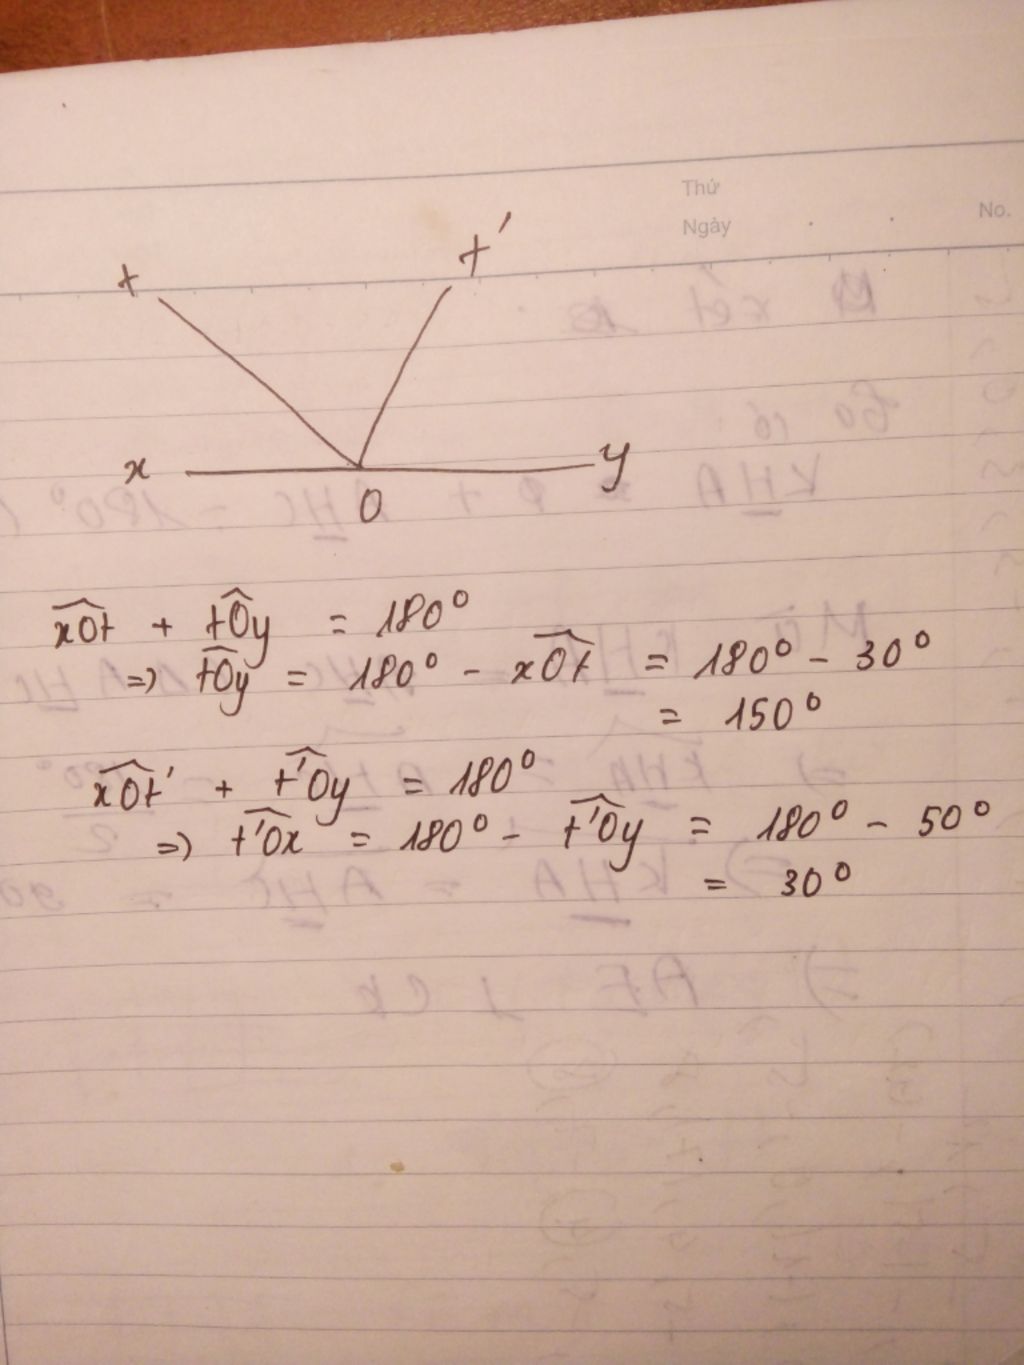 Thứ
Ngày
No.
t t'
x y
O
xOt + tOy = 180°
=> tOy = 180° - xOt = 180° - 30°
= 150°
xOt' + t'Oy = 180°
=> t'Ox = 180° - t'Oy = 180° - 50°
= 30°